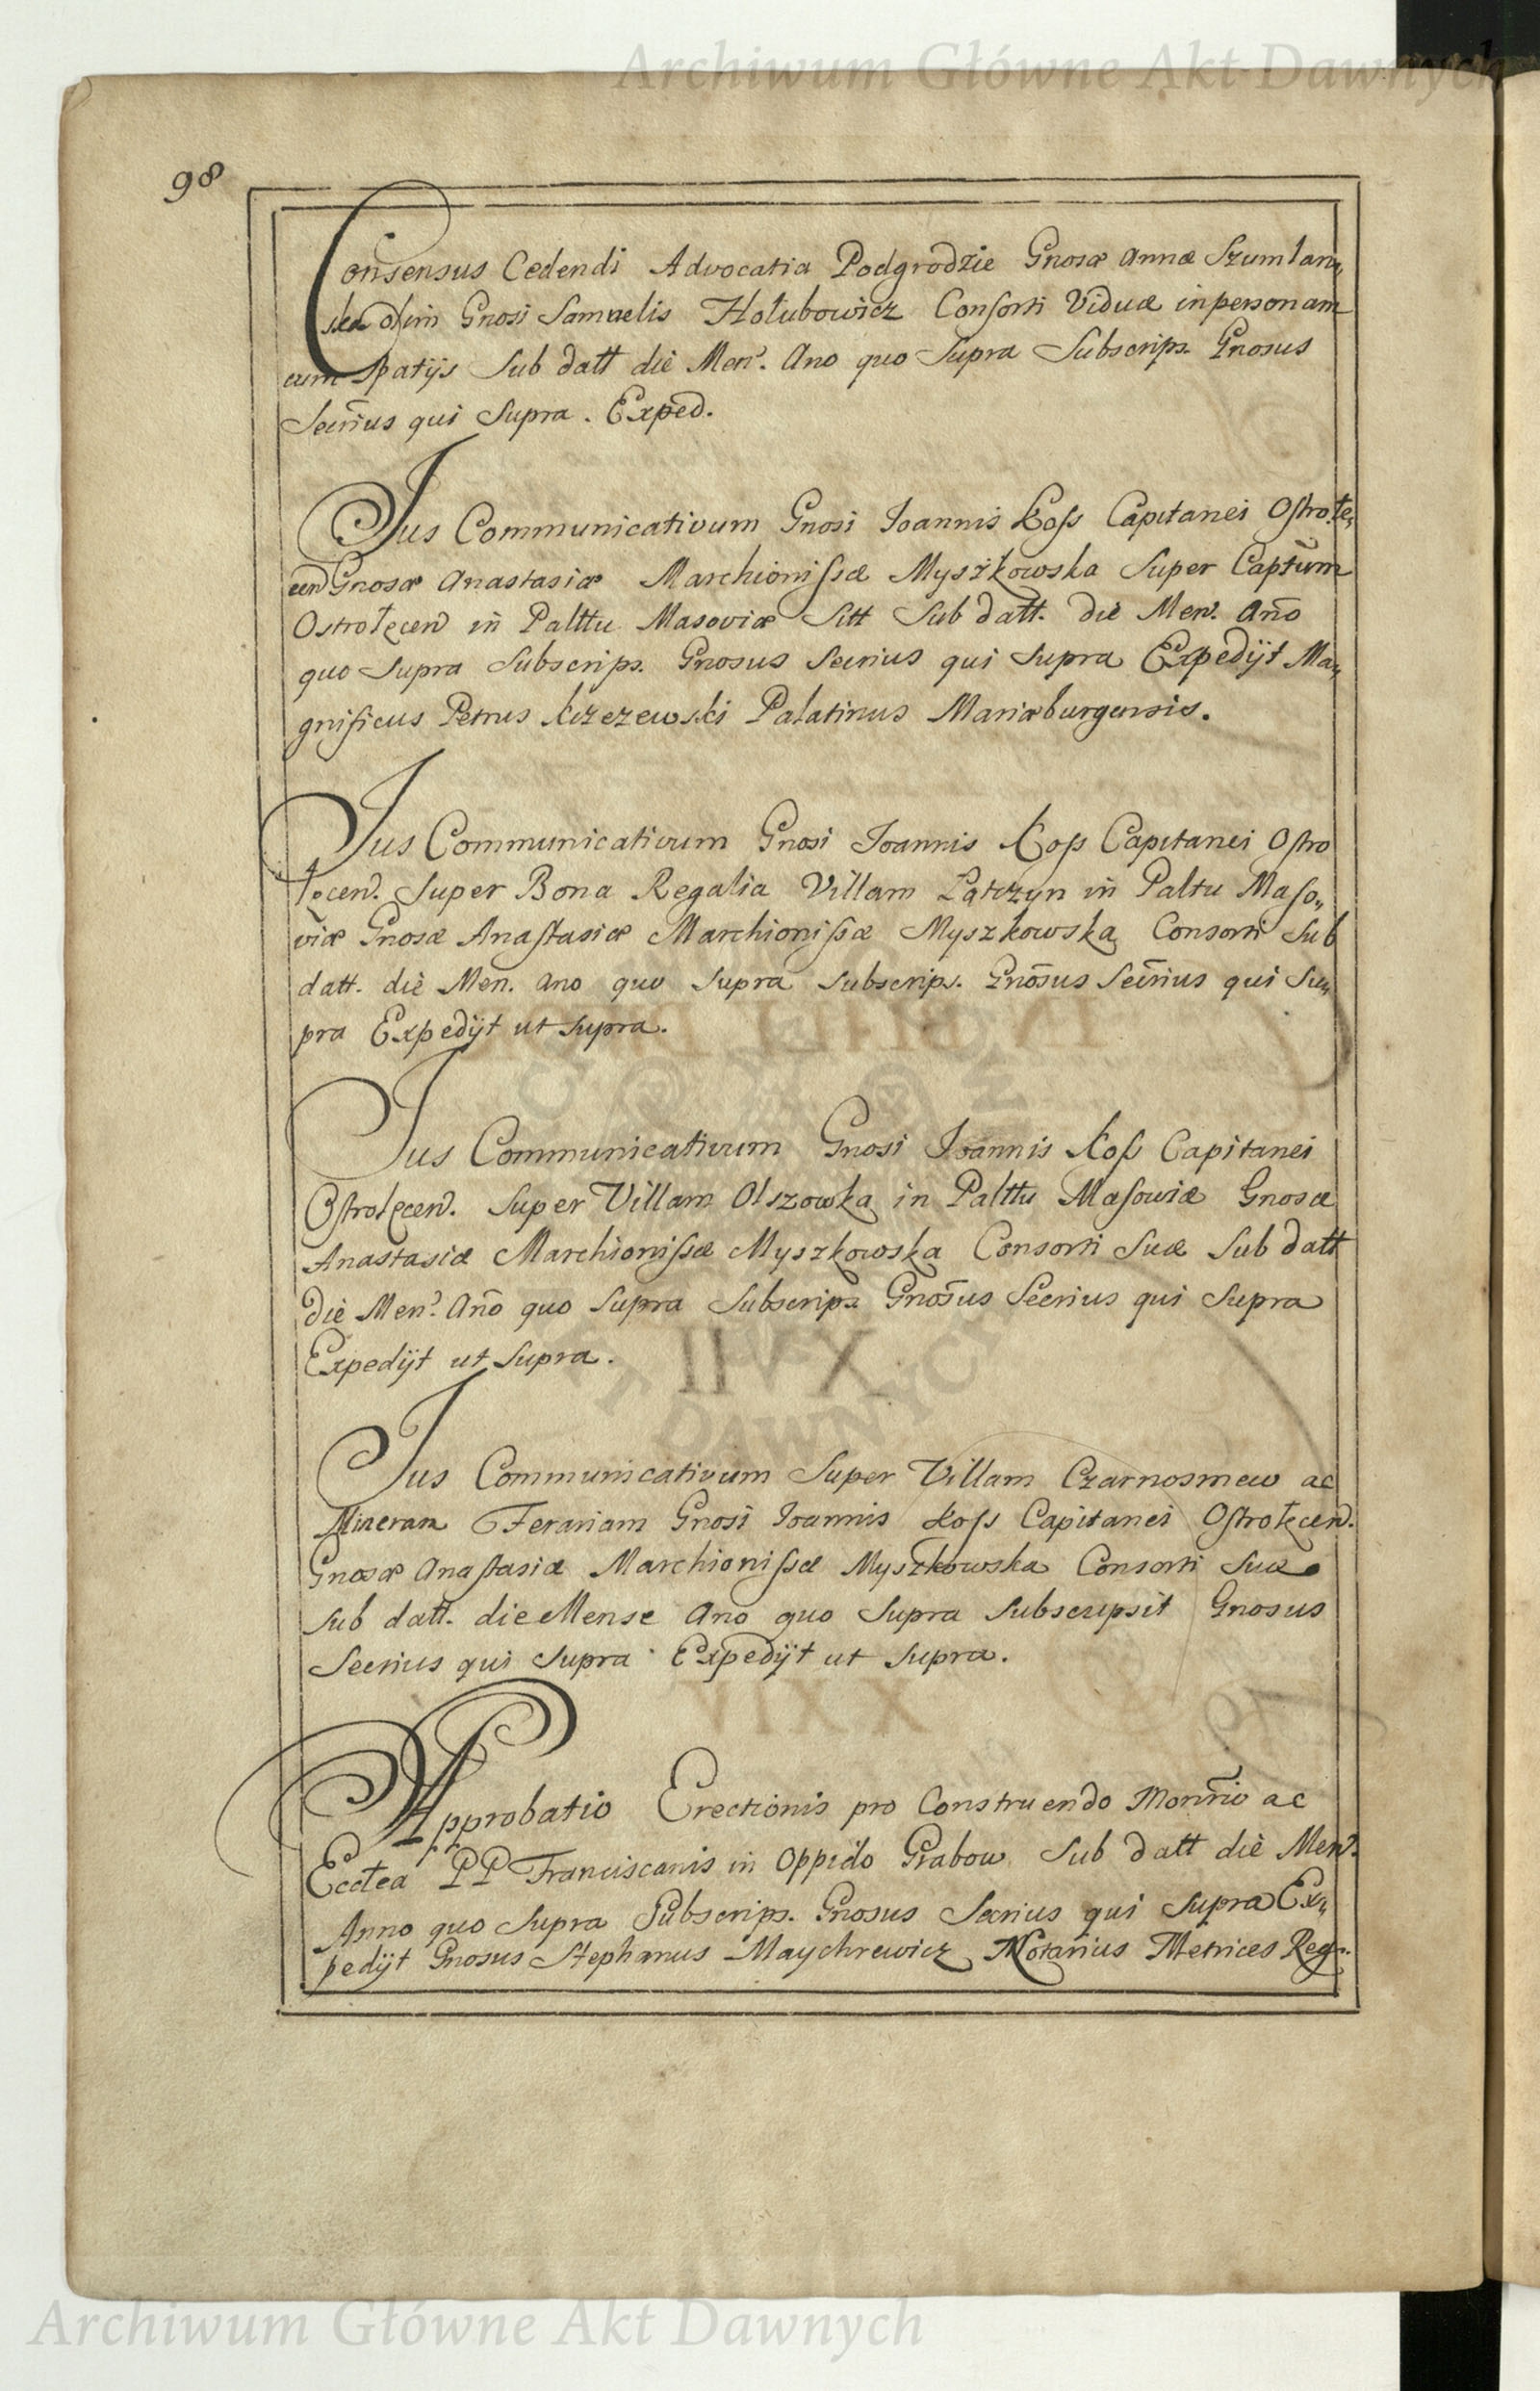 Archiwum Główne Akt Dawnych
98
Consensus Cedendi Advocatia Podgrodzie Gnosæ Annæ Szumlan„
ska olim Gnosi Samuelis Hołubowicz Consorti Viduæ in personam
cum Spatijs Sub datt die Men. Ano quo Supra Subscrips. Gnosus
Secrius qui Supra. Exped.
Jus Communicativum Gnosi Joannis Koss Capitanei Ostrołę„
cen Gnosæ Anastasiæ Marchionissæ Myszkowska Super Captum
Ostrołęcen in Palttu Masoviæ Sitt Sub datt. die Men. Ano
quo Supra Subscrips. Gnosus Secrius qui Supra Expedijt Ma„
gnificus Petrus Kczezewski Palatinus Mariæburgensis.
Jus Communicativum Gnosi Joannis Koss Capitanei Ostro
łęcen. Super Bona Regalia Villam Łątczyn in Paltu Maso„
viæ Gnosæ Anastasiæ Marchionissæ Myszkowska Consorti Sub
datt. die Men. Ano quo Supra Subscrips. Gnosus Secrius qui Su„
pra Expedijt ut Supra.
Jus Communicativum Gnosi Joannis Koss Capitanei
Ostrołęcen. Super Villam Olszowka in Palttu Masowiæ Gnosæ
Anastasiæ Marchionissæ Myszkowska Consorti Suæ Sub datt
die Men. Ano quo Supra Subscrips Gnosus Secrius qui Supra
Expedijt ut Supra.
Jus Communicativum Super Villam Czarnosmew ac
Mineram Ferariam Gnosi Joannis Koss Capitanei Ostrołęcen.
Gnosæ Anastasiæ Marchionissæ Myszkowska Consorti Suæ
Sub datt. die Mense Ano quo Supra Subscripsit Gnosus
Secrius qui Supra Expedijt ut Supra.
Approbatio Erectionis pro Construendo Monrio ac
Ecclea PP Franciscanis in Oppido Grabow Sub datt die Men.
Anno quo Supra Subscrips. Gnosus Secrius qui Supra Ex„
pedijt Gnosus Stephanus Maychrewicz Notarius Metrices Reg.
Archiwum Główne Akt Dawnych